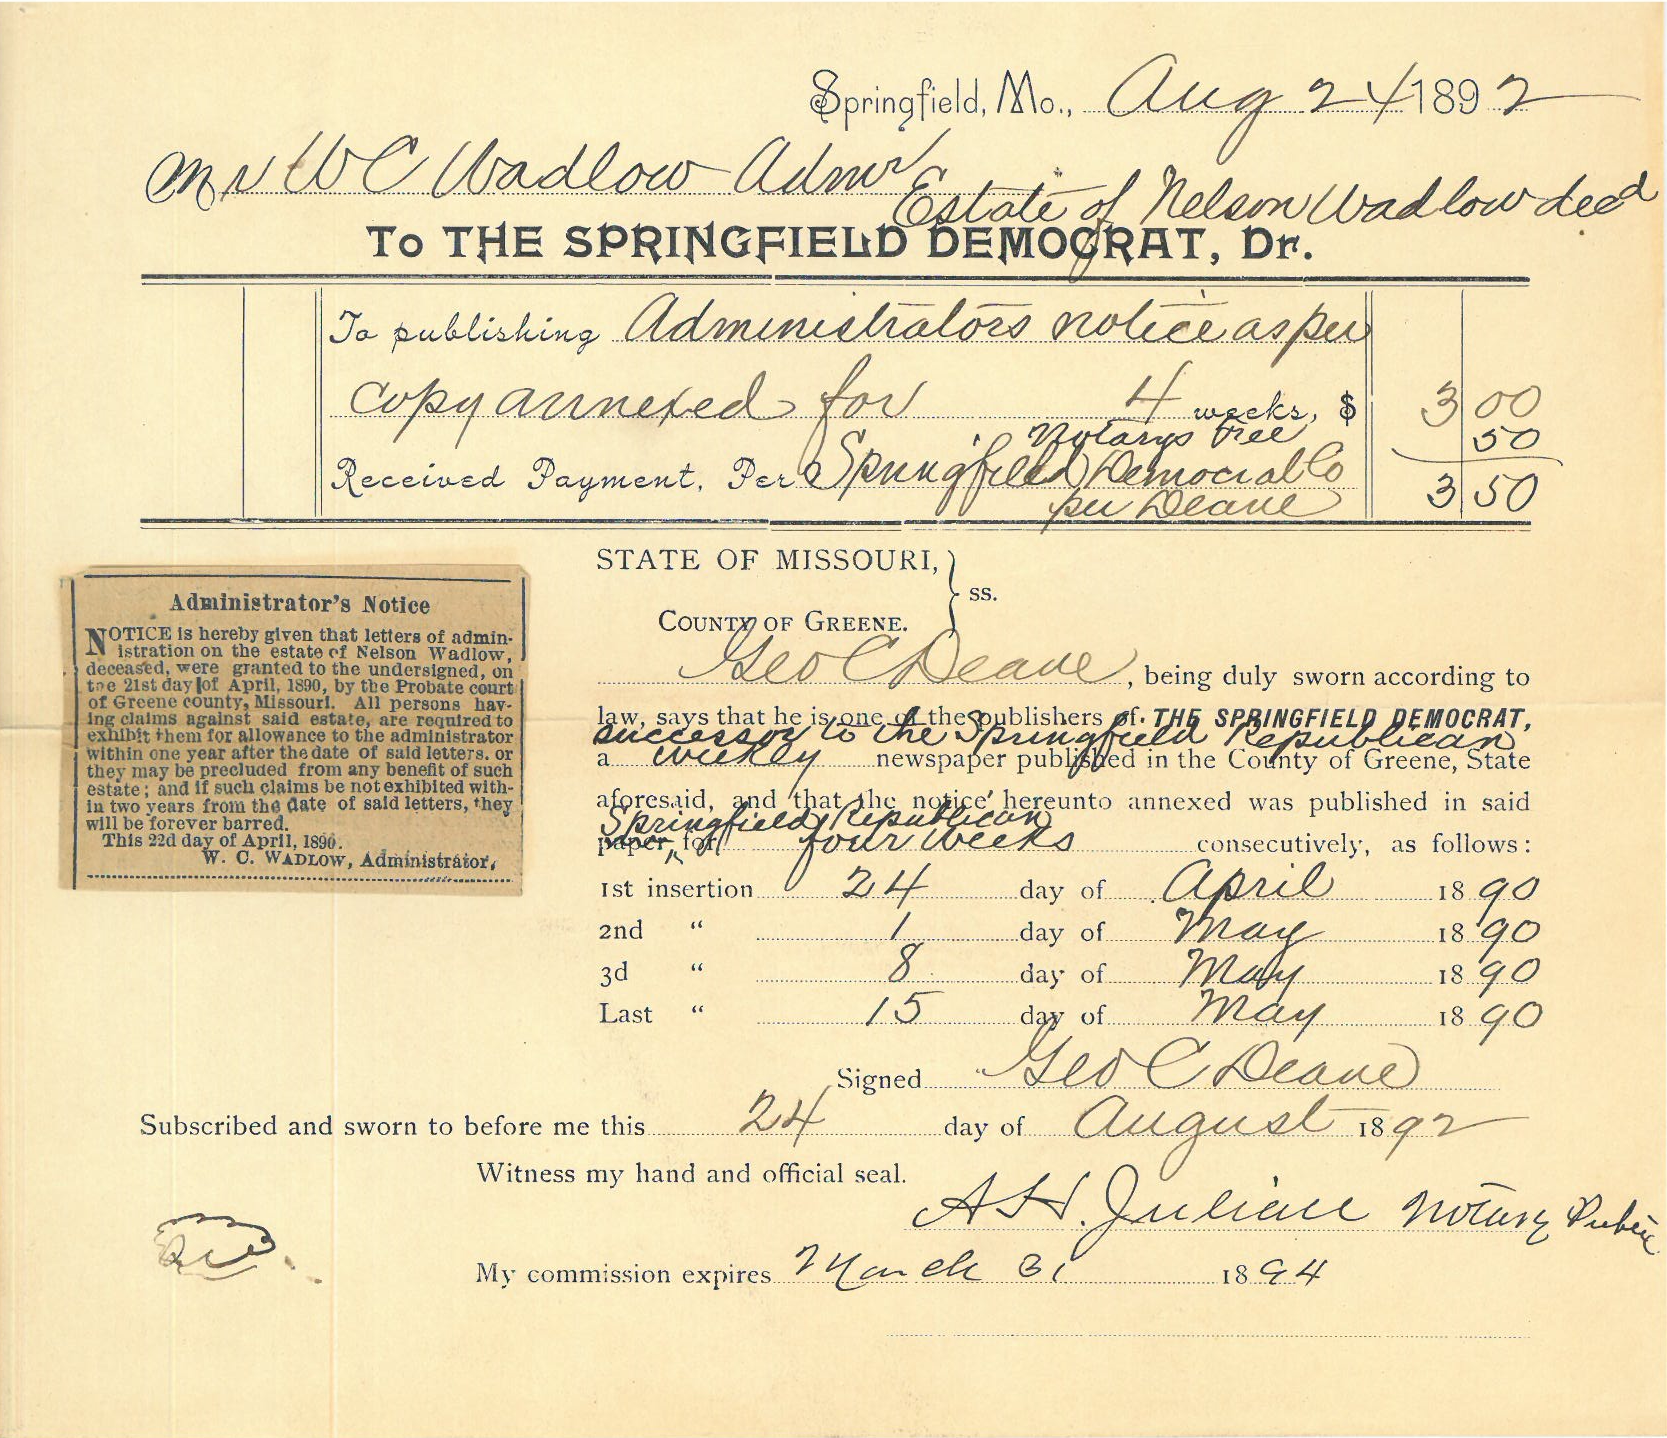 Springfield, Mo., Aug 24 1892
Mr W C Wadlow Admr
Estate of Nelson Wadlow decd
To THE SPRINGFIELD DEMOCRAT, Dr.
To publishing Administrators notice as per
copy annexed for 4 weeks, $ 3 00
Notarys Free 50
Received Payment, Per Springfield Democrat Co 3 50
per Deane
STATE OF MISSOURI, } ss.
COUNTY OF GREENE.
Geo C Deane, being duly sworn according to
law, says that he is one of the publishers of THE SPRINGFIELD DEMOCRAT,
successor to the Springfield Republican
a weekly newspaper published in the County of Greene, State
aforesaid, and that the notice hereunto annexed was published in said
Springfield Republican
paper for four weeks consecutively, as follows:
1st insertion 24 day of April 1890
2nd " 1 day of May 1890
3d " 8 day of May 1890
Last " 15 day of May 1890
Signed Geo C Deane
Subscribed and sworn to before me this 24 day of August 1892
Witness my hand and official seal.
A H. Julian Notary Public
My commission expires March 31 1894
Administrator's Notice
NOTICE is hereby given that letters of admin-
istration on the estate of Nelson Wadlow,
deceased, were granted to the undersigned, on
the 21st day of April, 1890, by the Probate court
of Greene county, Missouri. All persons hav-
ing claims against said estate, are required to
exhibit them for allowance to the administrator
within one year after the date of said letters. or
they may be precluded from any benefit of such
estate; and if such claims be not exhibited with-
in two years from the date of said letters, they
will be forever barred.
This 22d day of April, 1890.
W. C. WADLOW, Administrator,